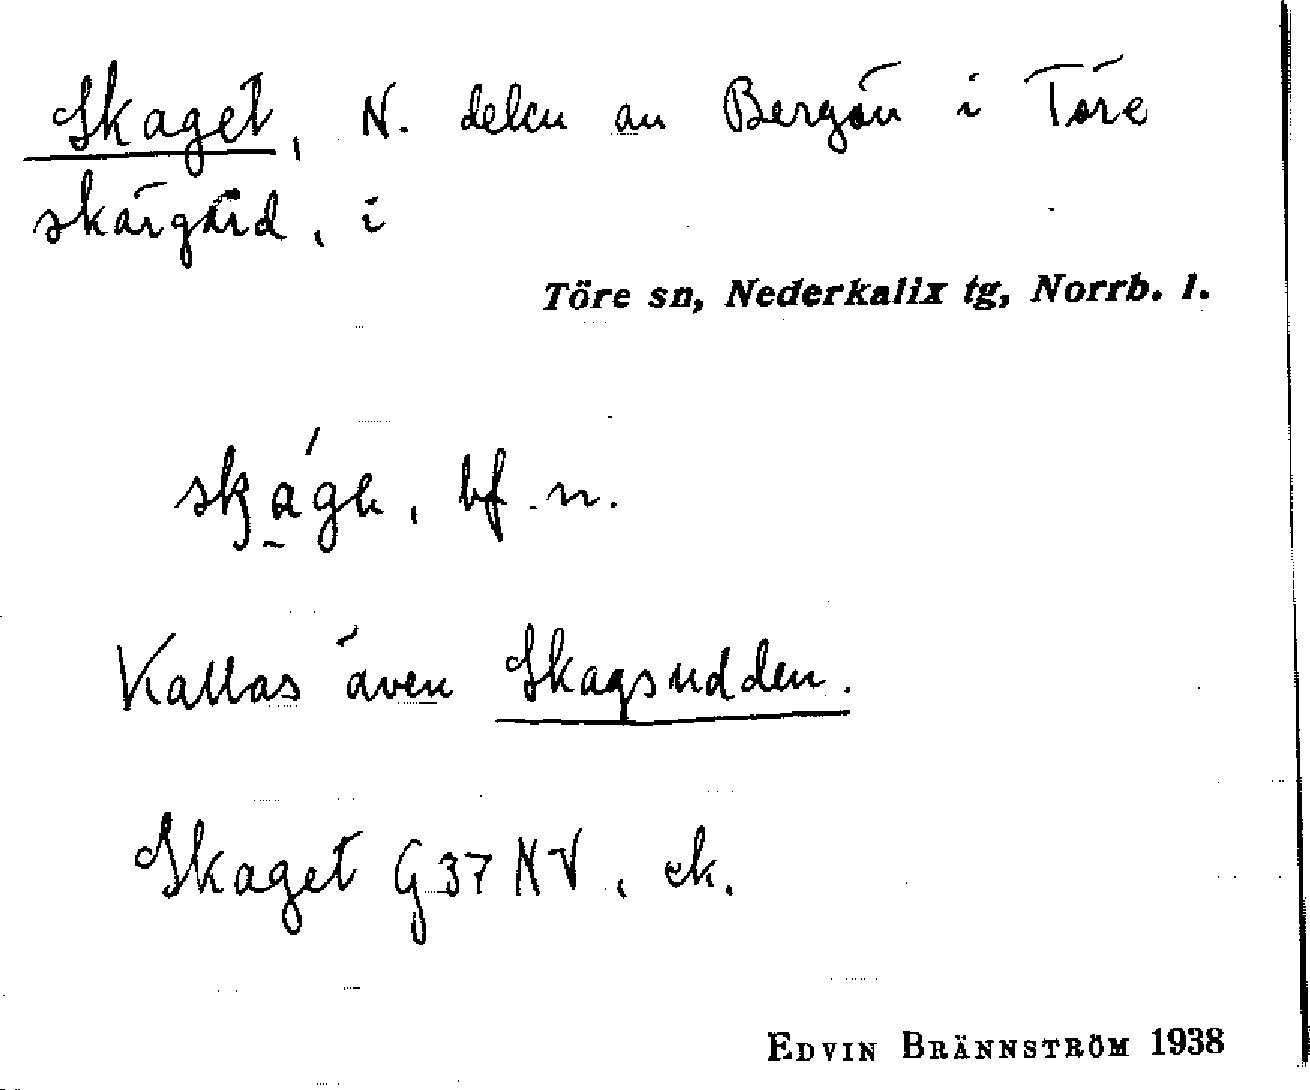 Skaget, N. delen av Bergön i Töre
skärgård, i
Töre sn, Nederkalix tg, Norrb. l.
bf. n.
Kallas även Skagsudden.
Skaget G 37 NV, ek.
EDVIN BRÄNNSTRÖM 1938